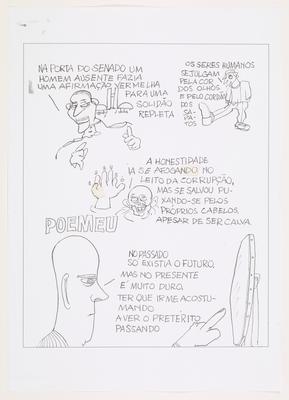 NA PORTA DO SENADO UM
HOMEM AUSENTE FAZIA
UMA AFIRMAÇÃO VERMELHA
PARA UMA
SOLIDÃO
REPLETA
OS SERES HUMANOS
SE JULGAM
PELA COR
DOS OLHOS
E PELO CORDÃO
DOS
SA
PA
TOS
A HONESTIDADE
IA SE AFOGANDO NO
LEITO DA CORRUPÇÃO,
MAS SE SALVOU PU-
XANDO-SE PELOS
PRÓPRIOS CABELOS,
APESAR DE SER CALVA.
POEMEU
NO PASSADO
SO EXISTIA O FUTURO,
MAS NO PRESENTE
É MUITO DURO,
TER QUE IR ME ACOSTU-
MANDO
A VER O PRETÉRITO
PASSANDO